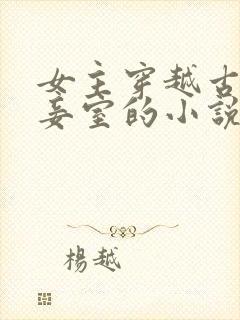 女主穿越古
妾室的小說
楊越